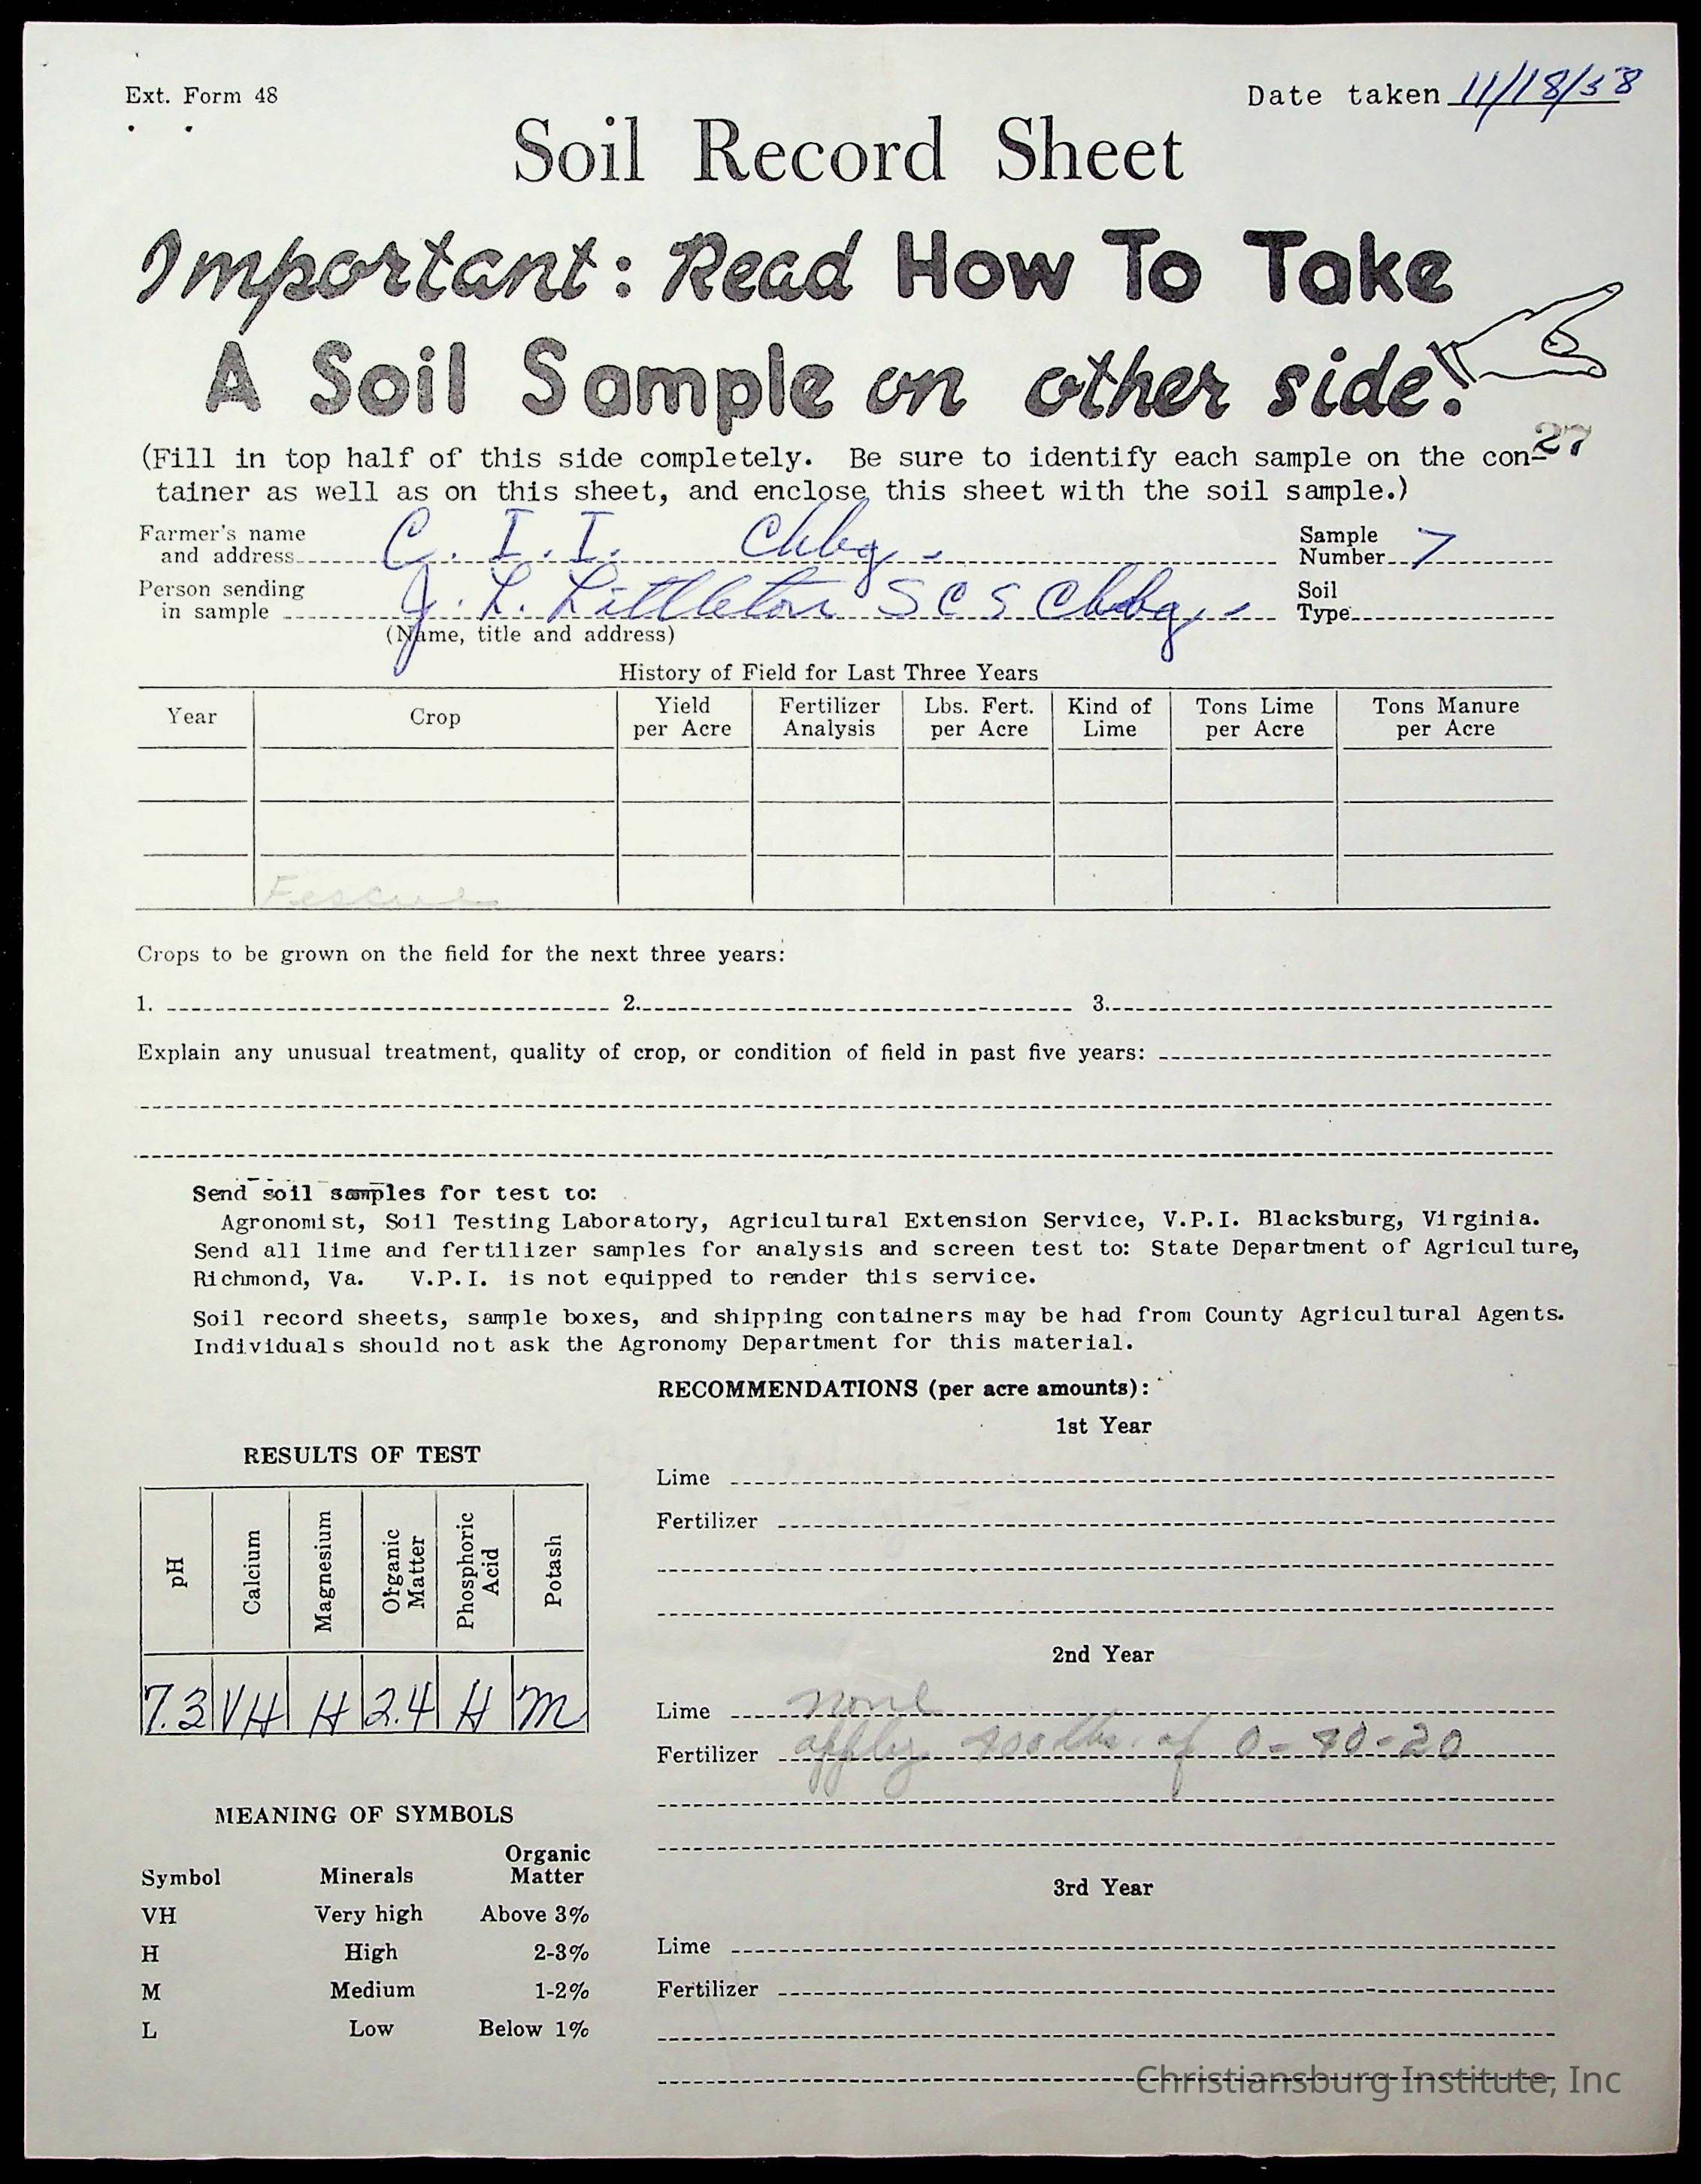 Ext. Form 48
Date taken 11/18/58
Soil Record Sheet
Important: Read How To Take
A Soil Sample on other side.
27
(Fill in top half of this side completely. Be sure to identify each sample on the con-
tainer as well as on this sheet, and enclose this sheet with the soil sample.)
Farmer's name
and address C. I. I. Chbg.
Sample
Number 7
Person sending
in sample J. L. Littleton SCS Chbg.
Soil
Type
(Name, title and address)
History of Field for Last Three Years
Year Crop Yield per Acre Fertilizer Analysis Lbs. Fert. per Acre Kind of Lime Tons Lime per Acre Tons Manure per Acre
Fescue
Crops to be grown on the field for the next three years:
1. 2. 3.
Explain any unusual treatment, quality of crop, or condition of field in past five years:
Send soil samples for test to:
Agronomist, Soil Testing Laboratory, Agricultural Extension Service, V.P.I. Blacksburg, Virginia.
Send all lime and fertilizer samples for analysis and screen test to: State Department of Agriculture,
Richmond, Va. V.P.I. is not equipped to render this service.
Soil record sheets, sample boxes, and shipping containers may be had from County Agricultural Agents.
Individuals should not ask the Agronomy Department for this material.
RESULTS OF TEST
pH Calcium Magnesium Organic Matter Phosphoric Acid Potash
7.3 VH H 2.4 H M
MEANING OF SYMBOLS
Symbol Minerals Organic Matter
VH Very high Above 3%
H High 2-3%
M Medium 1-2%
L Low Below 1%
RECOMMENDATIONS (per acre amounts):
1st Year
Lime
Fertilizer
2nd Year
Lime none
Fertilizer apply lbs. of
3rd Year
Lime
Fertilizer
Christiansburg Institute, Inc